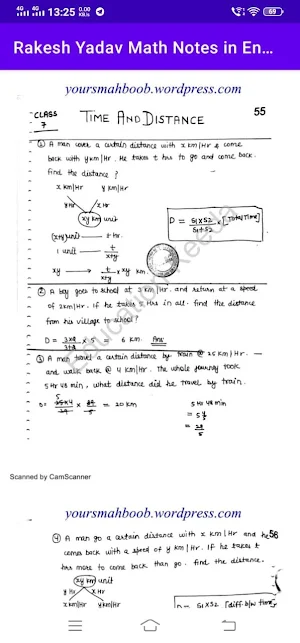 4G 4G 13:25 0.00 KB/s 69
Rakesh Yadav Math Notes in En...
yoursmahboob.wordpress.com
CLASS
7
TIME AND DISTANCE
55
① A man cover a certain distance with x km/Hr & come
back with y km/Hr. He takes t hrs to go and come back.
Find the distance?
x km/Hr y km/Hr
y Hr x Hr
xy km unit
D = S1×S2 / S1+S2 × [Total Time]
(x+y) unit — t hr.
1 unit — t/x+y
xy → t/x+y × xy km.
② A boy goes to school at 3 km/Hr. and return at a speed
of 2km/Hr. If he takes 5 Hrs in all. find the distance
from his village to school?
D = 3×2/3+2 × 5 = 6 km Ans
③ A man travel a certain distance by train @ 25 km/Hr.
and walk back @ 4 km/Hr. The whole journey took
5 Hr 48 min, what distance did he travel by train.
D = 25×4/29 × 29/5 = 20 km
5 Hr 48 min
= 5 4/5
= 29/5
Education Keeda
Scanned by CamScanner
yoursmahboob.wordpress.com
56
④ A man go a certain distance with x km/Hr and he
comes back with a speed of y km/Hr. If he takes t
hrs more to come back than go. find the distance.
xy km unit
y Hr x Hr
x km/Hr y km/Hr
D = S1×S2 [diff. b/w time]